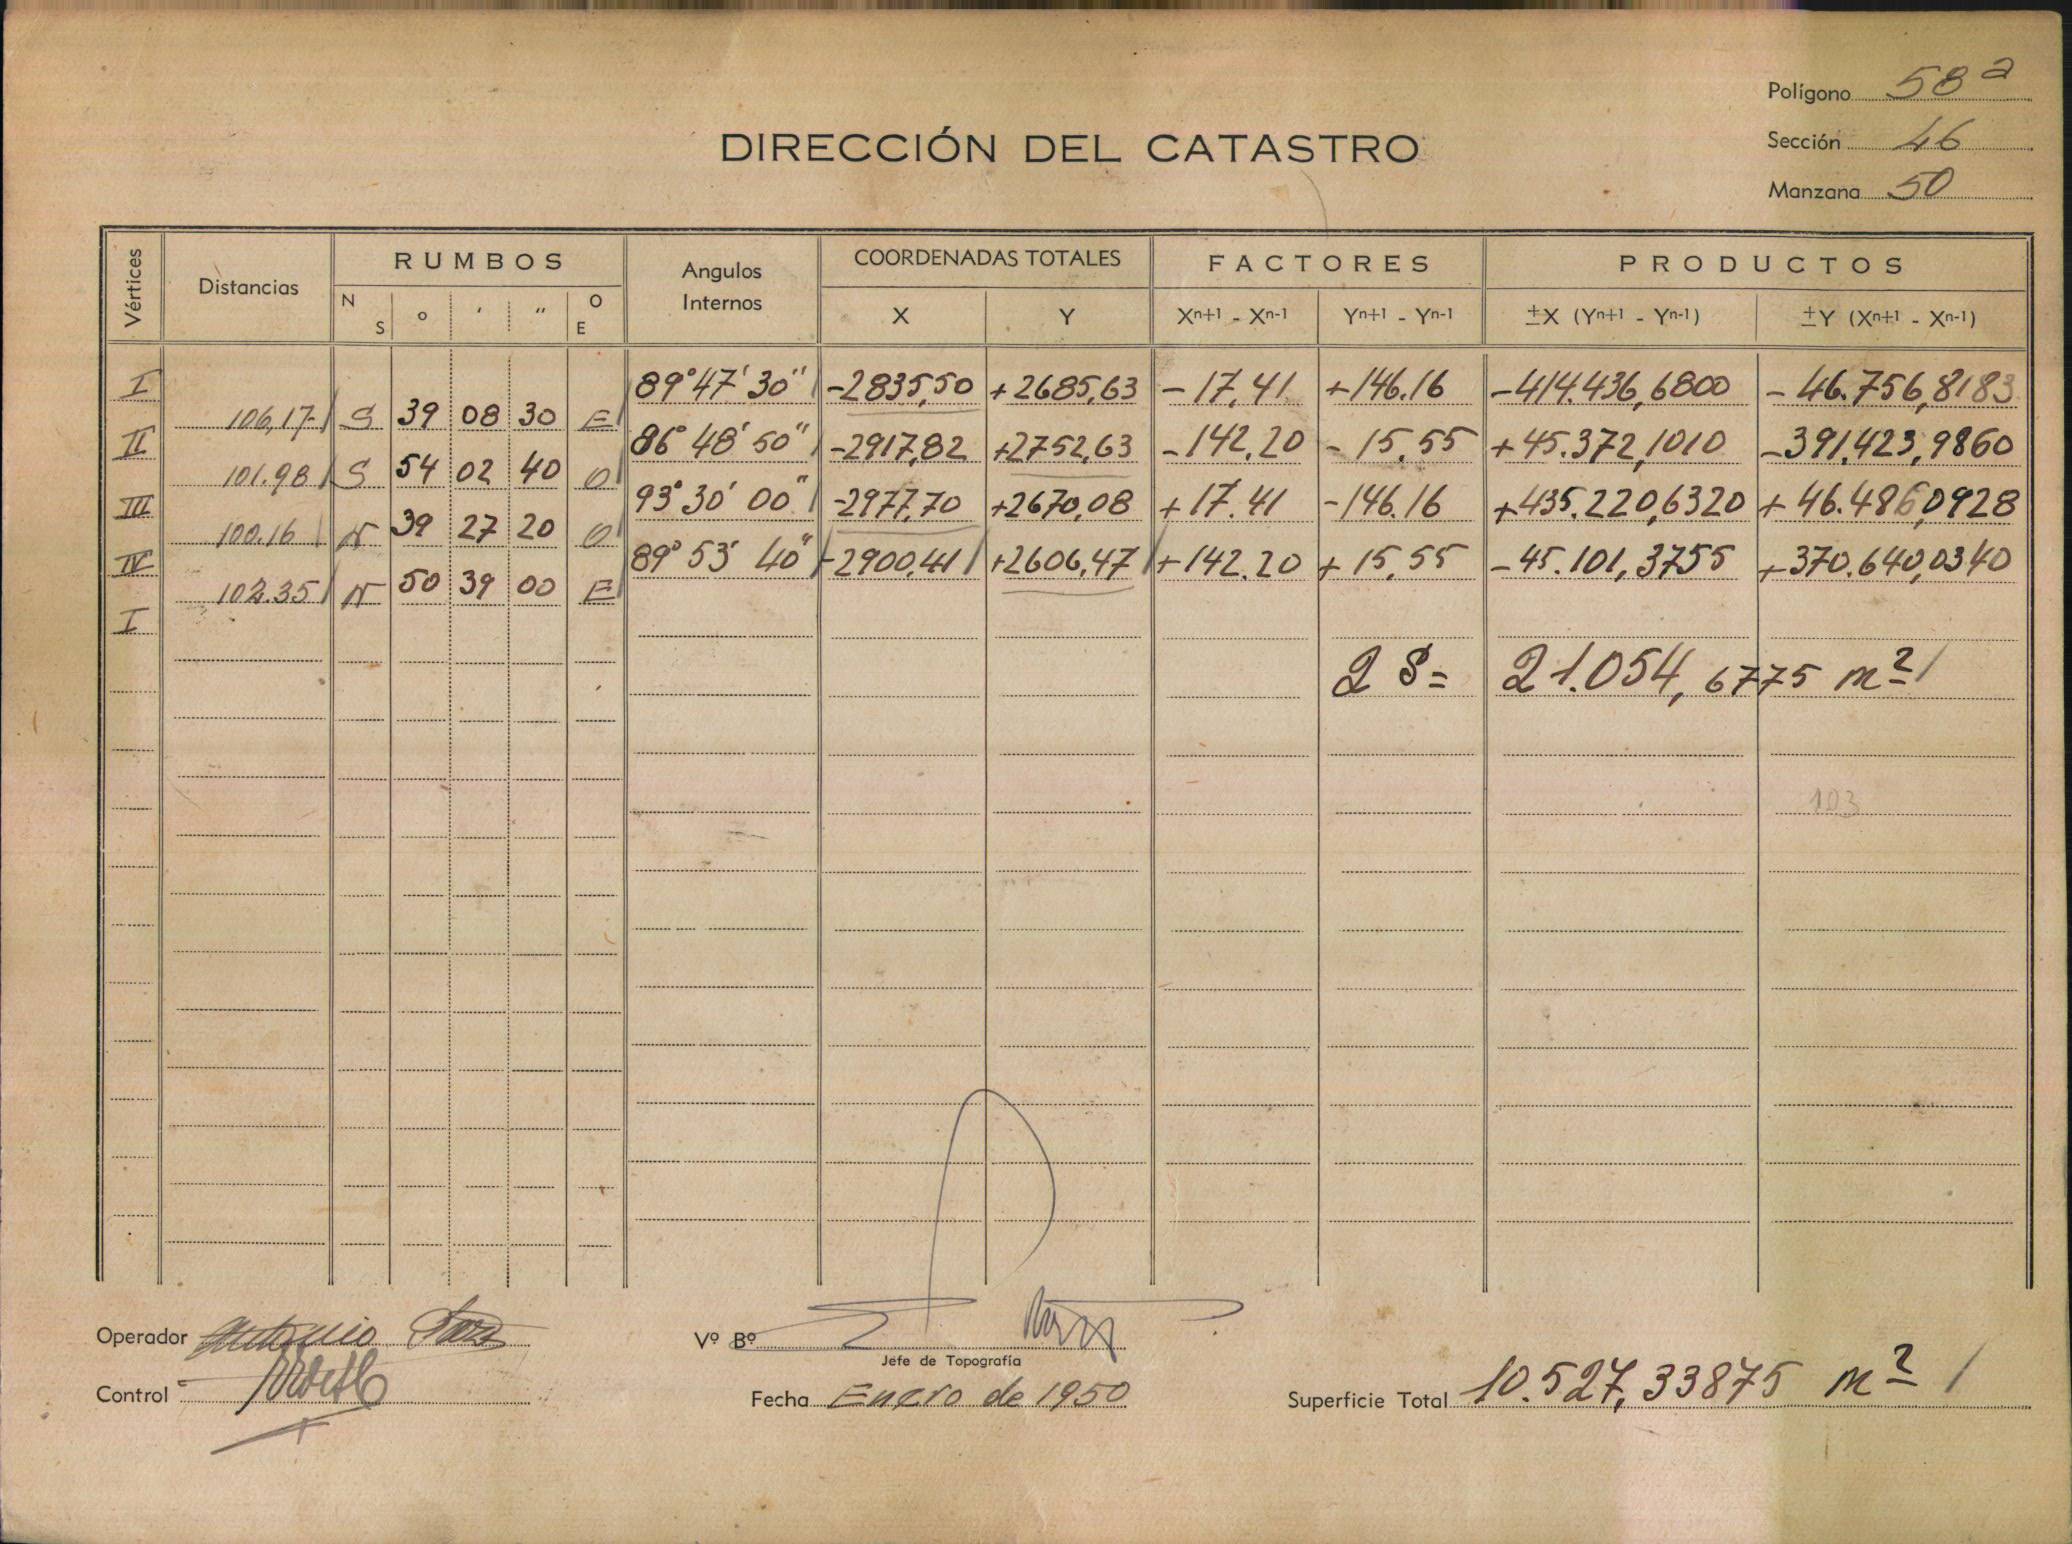 Polígono 58 a
DIRECCIÓN DEL CATASTRO
Sección 46
Manzana 50
Vértices Distancias RUMBOS Angulos Internos COORDENADAS TOTALES FACTORES PRODUCTOS
N S ° ' " O E X Y Xn+1 - Xn-1 Yn+1 - Yn-1 ±X (Yn+1 - Yn-1) ±Y (Xn+1 - Xn-1)
I 89° 47' 30" -2835,50 +2685,63 -17,41 +146.16 -414.436,6800 -46.756,8183
106,17 S 39 08 30 E
II 86° 48' 50" -2917,82 +2752,63 -142.20 -15.55 +45.372,1010 -391.423,9860
101.98 S 54 02 40 O
III 93° 30' 00" -2977,70 +2670,08 +17.41 -146.16 +435.220,6320 +46.486,0928
100.16 N 39 27 20 O
IV 89° 53' 40" -2900,41 +2606,47 +142.20 +15,55 -45.101,3755 +370.640,0340
102.35 N 50 39 00 E
I
2 S = 21.054,6775 m2
103
Operador Antonio
Vº Bº
Jefe de Topografía
Control
Fecha Enero de 1950
Superficie Total 10.527,33875 m2